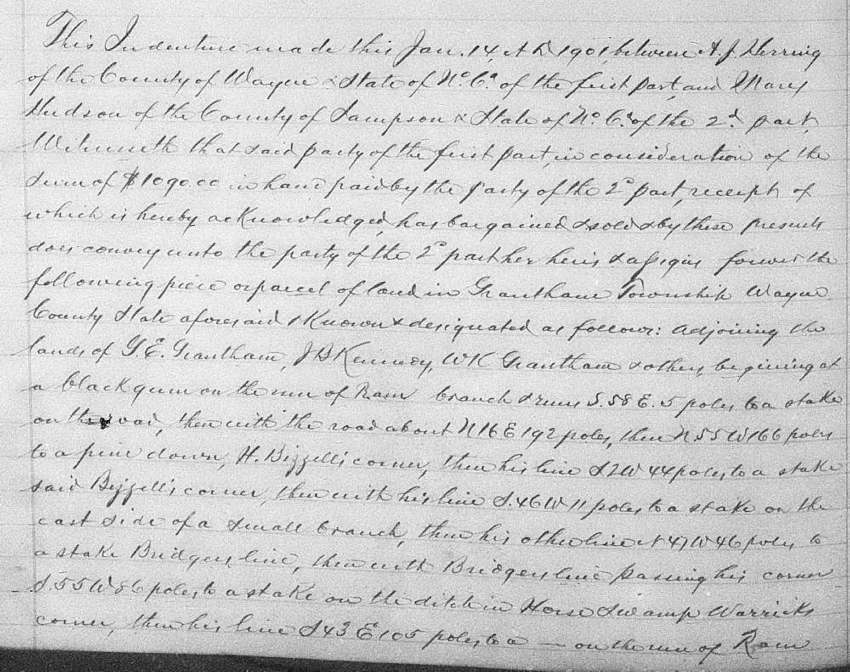 This Indenture made this Jan. 14, A D 1901, between A. J. Herring
of the County of Wayne & State of No. Ca. of the first part, and Mary
Hudson of the County of Sampson & State of No. Ca. of the 2d part,
Witnesseth that said party of the first part, in consideration of the
sum of $1090 00 in hand paid by the party of the 2d part, receipt of
which is hereby acknowledged, has bargained & sold & by these presents
does convey unto the party of the 2d part her heirs & assigns forever the
following piece or parcel of land in Grantham Township Wayne
County State aforesaid & Known & designated as follows: adjoining the
lands of G. E. Grantham, J B Kennedy, W K Grantham & others, begining at
a black gum on the run of Ram branch & runs S. 58 E. 5 poles to a stake
on the road, then with the road about N 16 E 192 poles, then N 55 W 166 poles
to a pine down, H. Bizzell's corner, then his line S 2 W 44 poles to a stake
said Bizzell's corner, then with his line S. 46 W 11 poles to a stake on the
east side of a small branch, then his other line N 47 W 46 poles to
a stake Bridgers line, then with Bridgers line passing his corner
S. 55 W 86 poles, to a stake on the ditch in Horse Swamp Warricks
corner, then his line S 43 E 105 poles to a — on the run of Ram